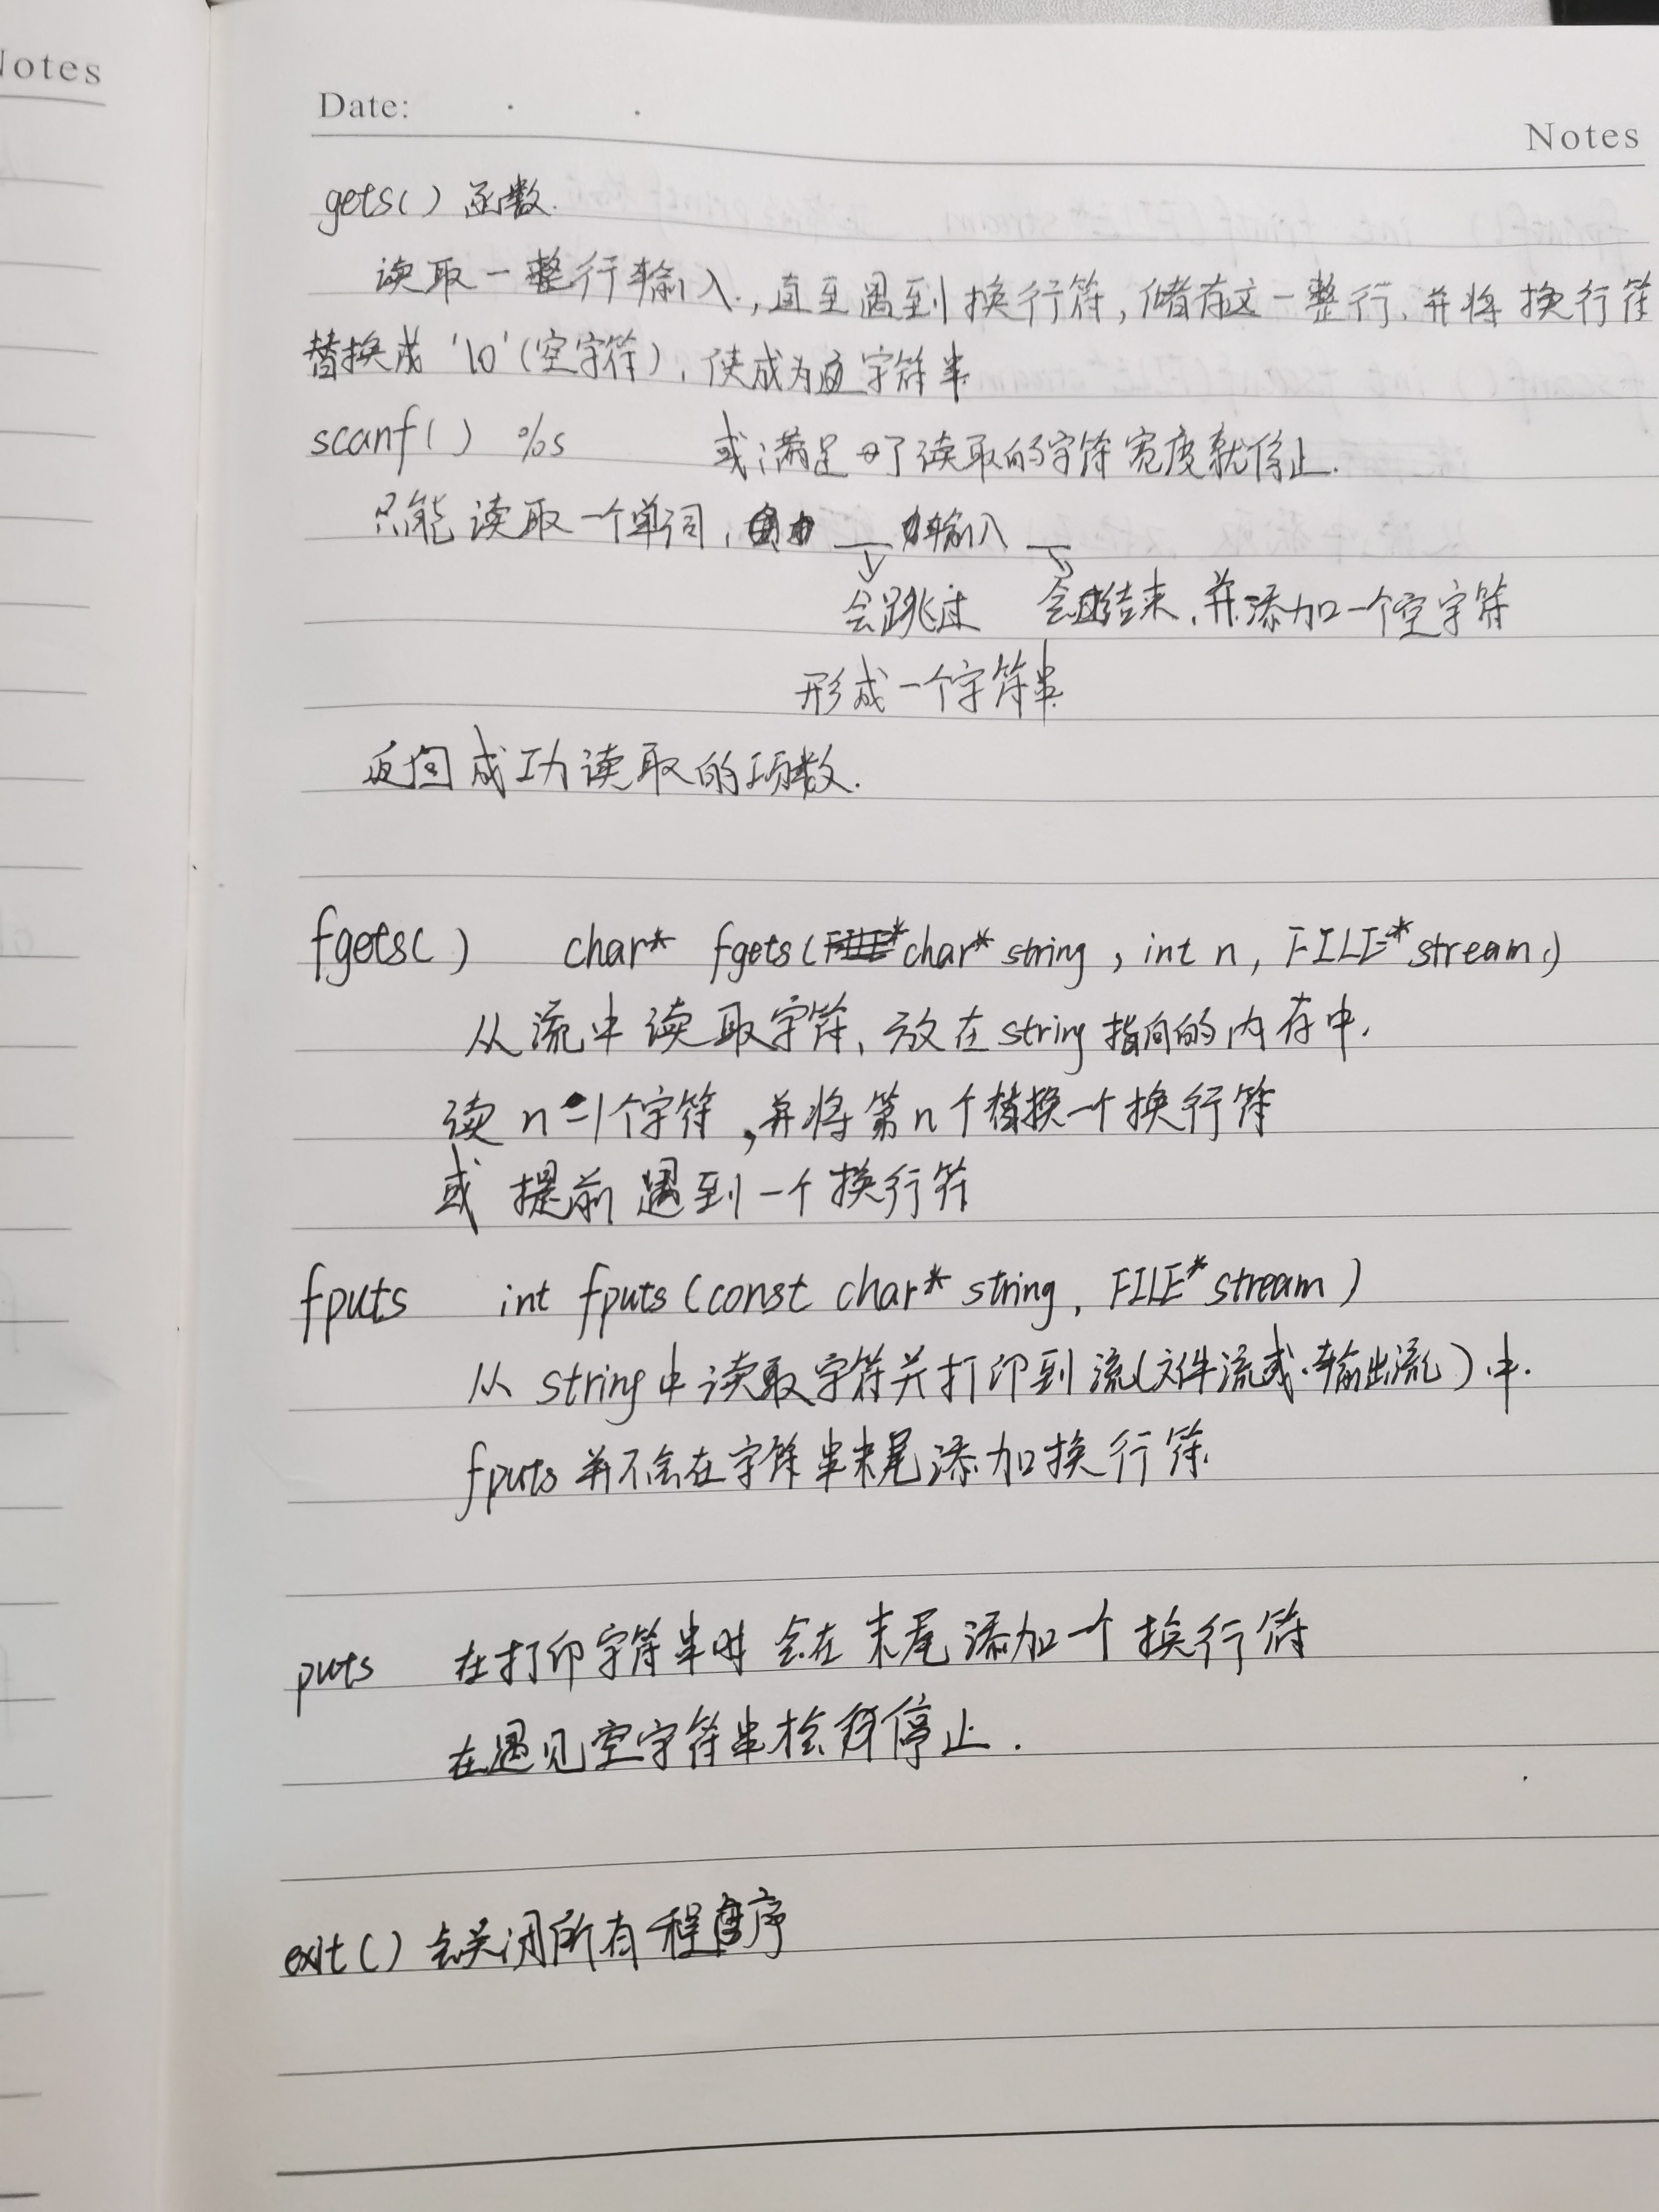 Notes
Date:
Notes
gets() 函数.
读取一整行输入,直至遇到换行符,储存这一整行,并将换行符
替换成'\0'(空字符),使成为字符串
scanf() %s 或满足了读取的字符宽度就停止.
只能读取一个单词, __ 输入 __
会跳过 会结束,并添加一个空字符
形成一个字符串
返回成功读取的项数.
fgets() char* fgets(char* string, int n, FILE* stream)
从流中读取字符,放在string指向的内存中.
读n-1个字符,并将第n个替换一个换行符
或提前遇到一个换行符
fputs int fputs(const char* string, FILE* stream)
从string中读取字符并打印到流(文件流或输出流)中.
fputs并不会在字符串末尾添加换行符.
puts 在打印字符串时会在末尾添加一个换行符
在遇见空字符串停止.
exit() 会关闭所有程序